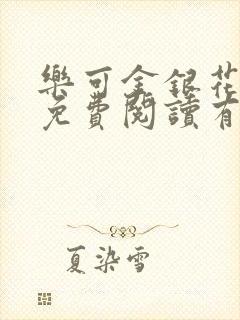 樂可金銀花
免費閱讀有
夏染雪